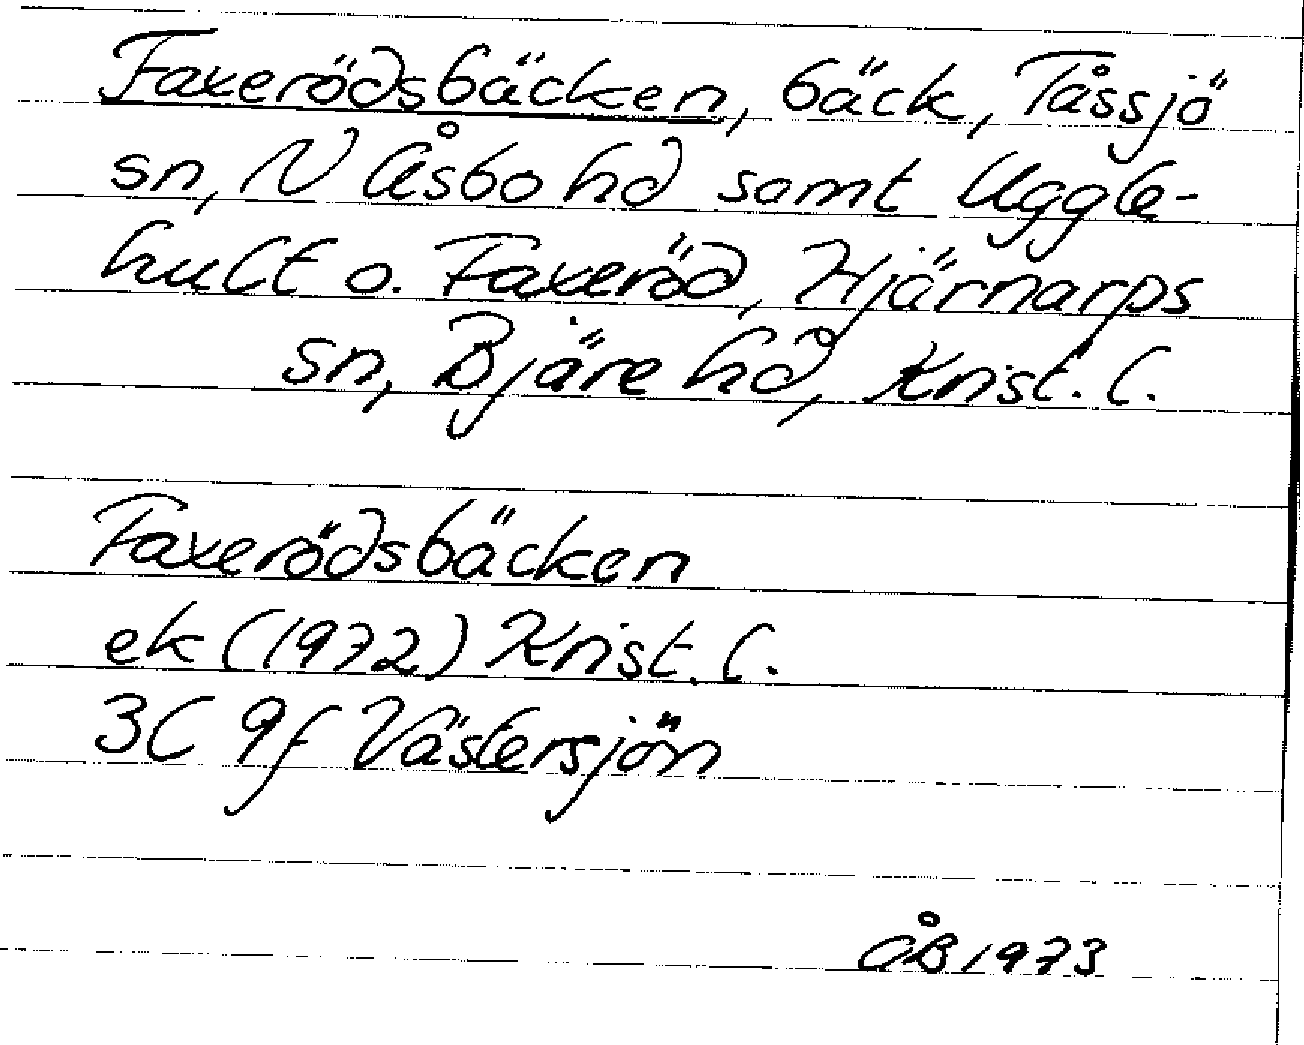 Faxerödsbäcken, bäck, Tåssjö
sn, N Åsbo hd samt Uggle-
hult o. Faxeröd, Hjärnarps
sn, Bjäre hd, Krist. l.
Faxerödsbäcken
ek (1972) Krist. l.
3C 9f Västersjön
ÅB 1973